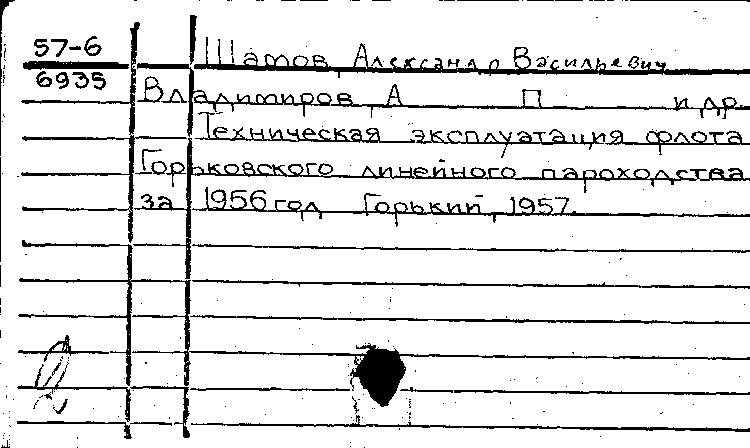 57-6 Шамов, Александр Васильевич
6935 Владимиров А П и др.
Техническая эксплуатация флота
Горьковского линейного пароходства
за 1956 год Горький, 1957.
2